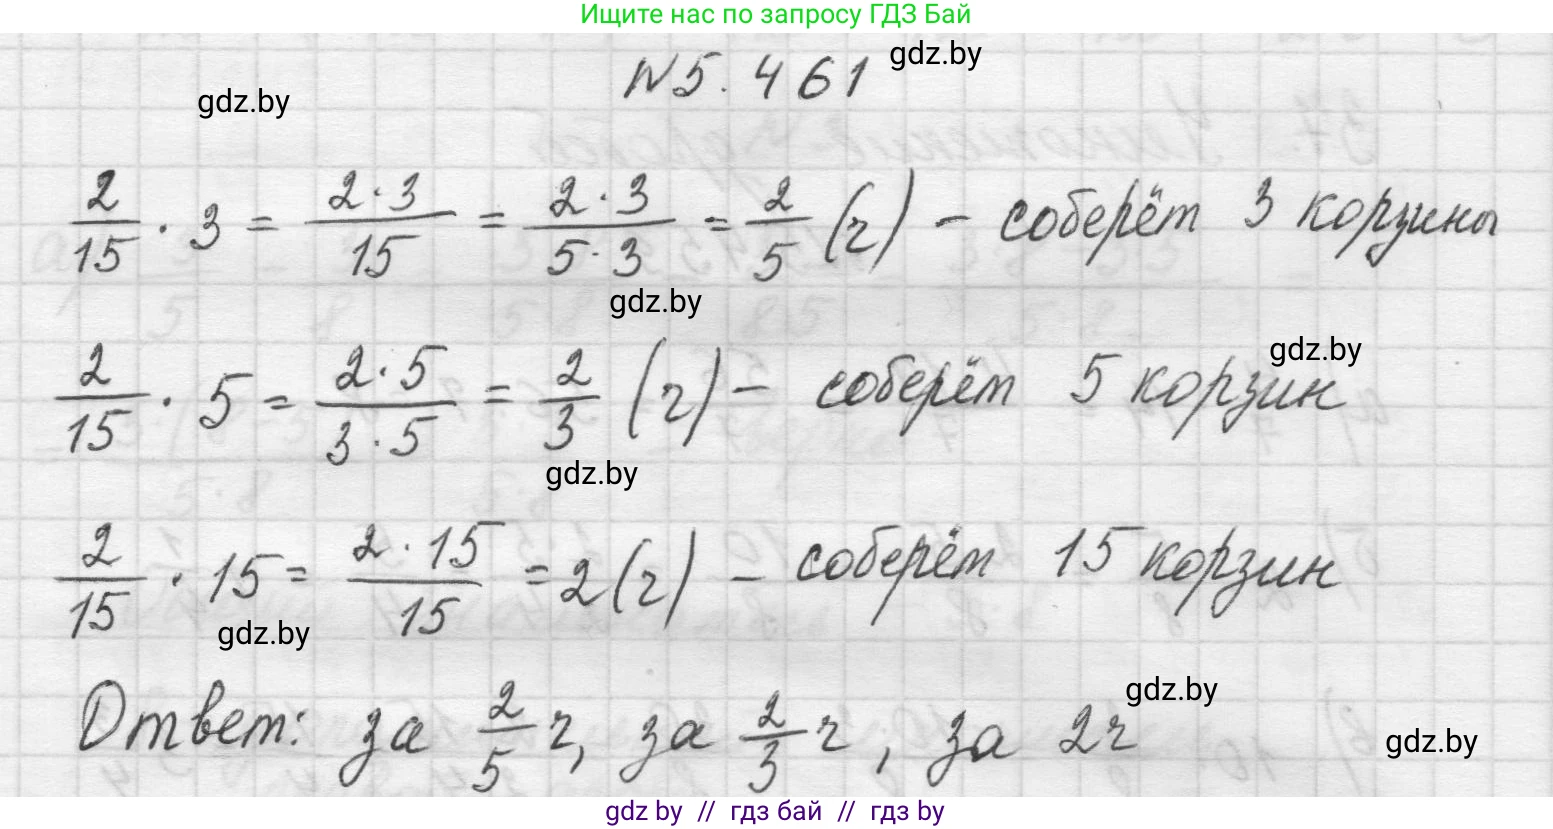 Ищите нас по запросу ГДЗ Бай
gdz.by
№5.461
gdz.by
2/15 · 3 = 2·3/15 = 2·3/5·3 = 2/5 (ч) – соберёт 3 корзины
gdz.by
gdz.by
2/15 · 5 = 2·5/3·5 = 2/3 (ч) – соберёт 5 корзин
gdz.by
2/15 · 15 = 2·15/15 = 2 (ч) – соберём 15 корзин
gdz.by
gdz.by
Ответ: за 2/5 ч, за 2/3 ч, за 2ч
gdz.by
gdz by // гдз бай // гдз by